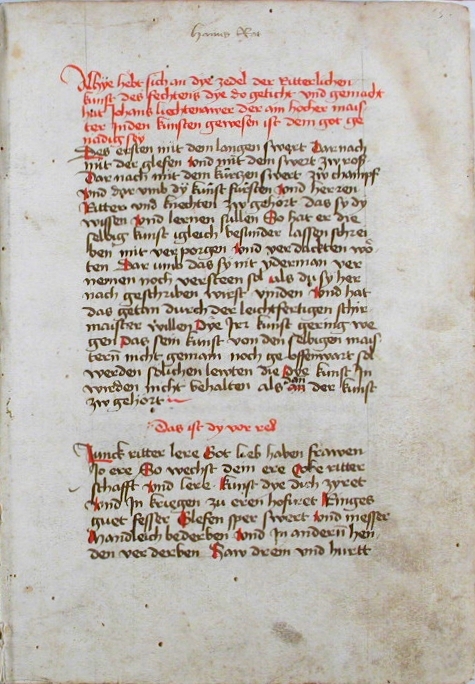 Alhye hebt sich an dye zedel der Ritterlichen
kunst des fechtens dye do geticht und gemacht
hat Johans liechtenawer der ain hocher mais
ter In den künsten gewesen ist dem got ge
nädig sey
Des ersten mit dem langen swert Dar nach
mit der glefen vnd mit dem swert zw ross
Dar nach mit dem kurtzen swert zw champf
vnd dar vmb dy kunst fursten vnd herren
Ritter vnd knechten zw gehört das sy dy
wissen vnd lernen sullen So hat er die
selbig kunst igleich besunder lassen schrei
ben mit verporgen vnd verdackten wo
ten Dar umb das sy nit yderman ver
nemen noch versteen sol als du sy her
nach geschriben wirst vinden vnd hat
das getan durch der leichtfertigen schir
maister willen Dye Irr kunst gering we
gen Das sein kunst von den selbigen mais
tern nicht gemain noch geoffenwart sol
werden solichen lewten die Dye kunst In
wirden nicht behalten als dan an der kunst
zw gehort
Das ist dy vor red
Junck ritter lere Got lieb haben frawen
Jo ere So wechst dein ere Vebe ritter
schafft vnd lere kunst dye dich zyret
vnd In kriegen zu eren hofiret Ringes
guet fesser Glefen sper swert vnd messer
Mandleich bederben vnd In anderñ hen
den verderben Haw drein vnd hurtt